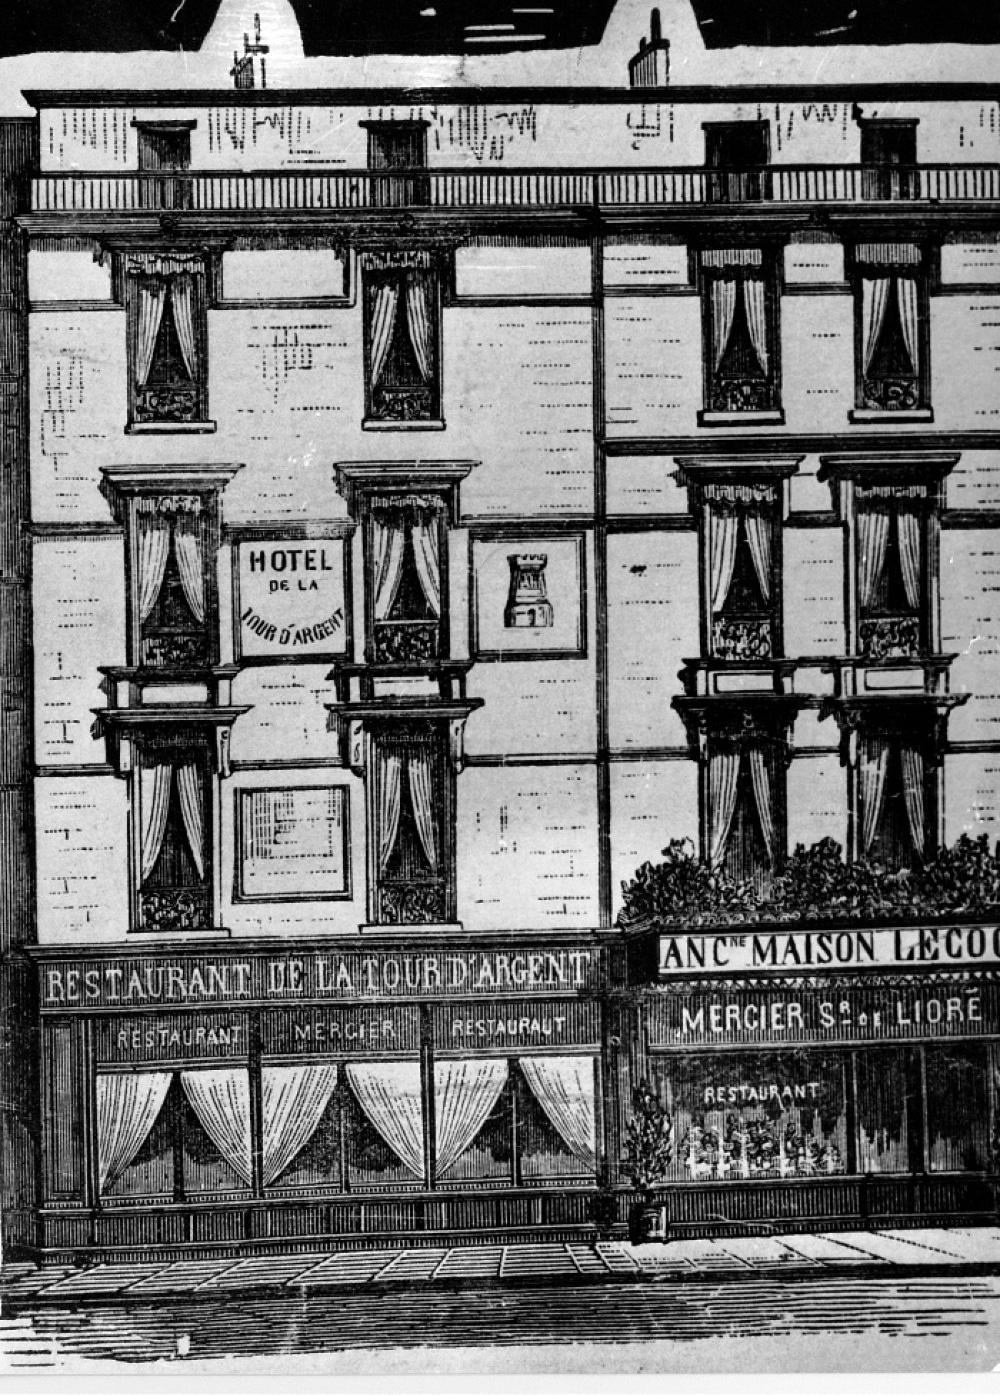 HOTEL
DE LA
TOUR D'ARGENT
RESTAURANT DE LA TOUR D'ARGENT
RESTAURANT MERCIER RESTAURAUT
ANC.NE MAISON LECOC
MERCIER SR DE LIORÉ
RESTAURANT